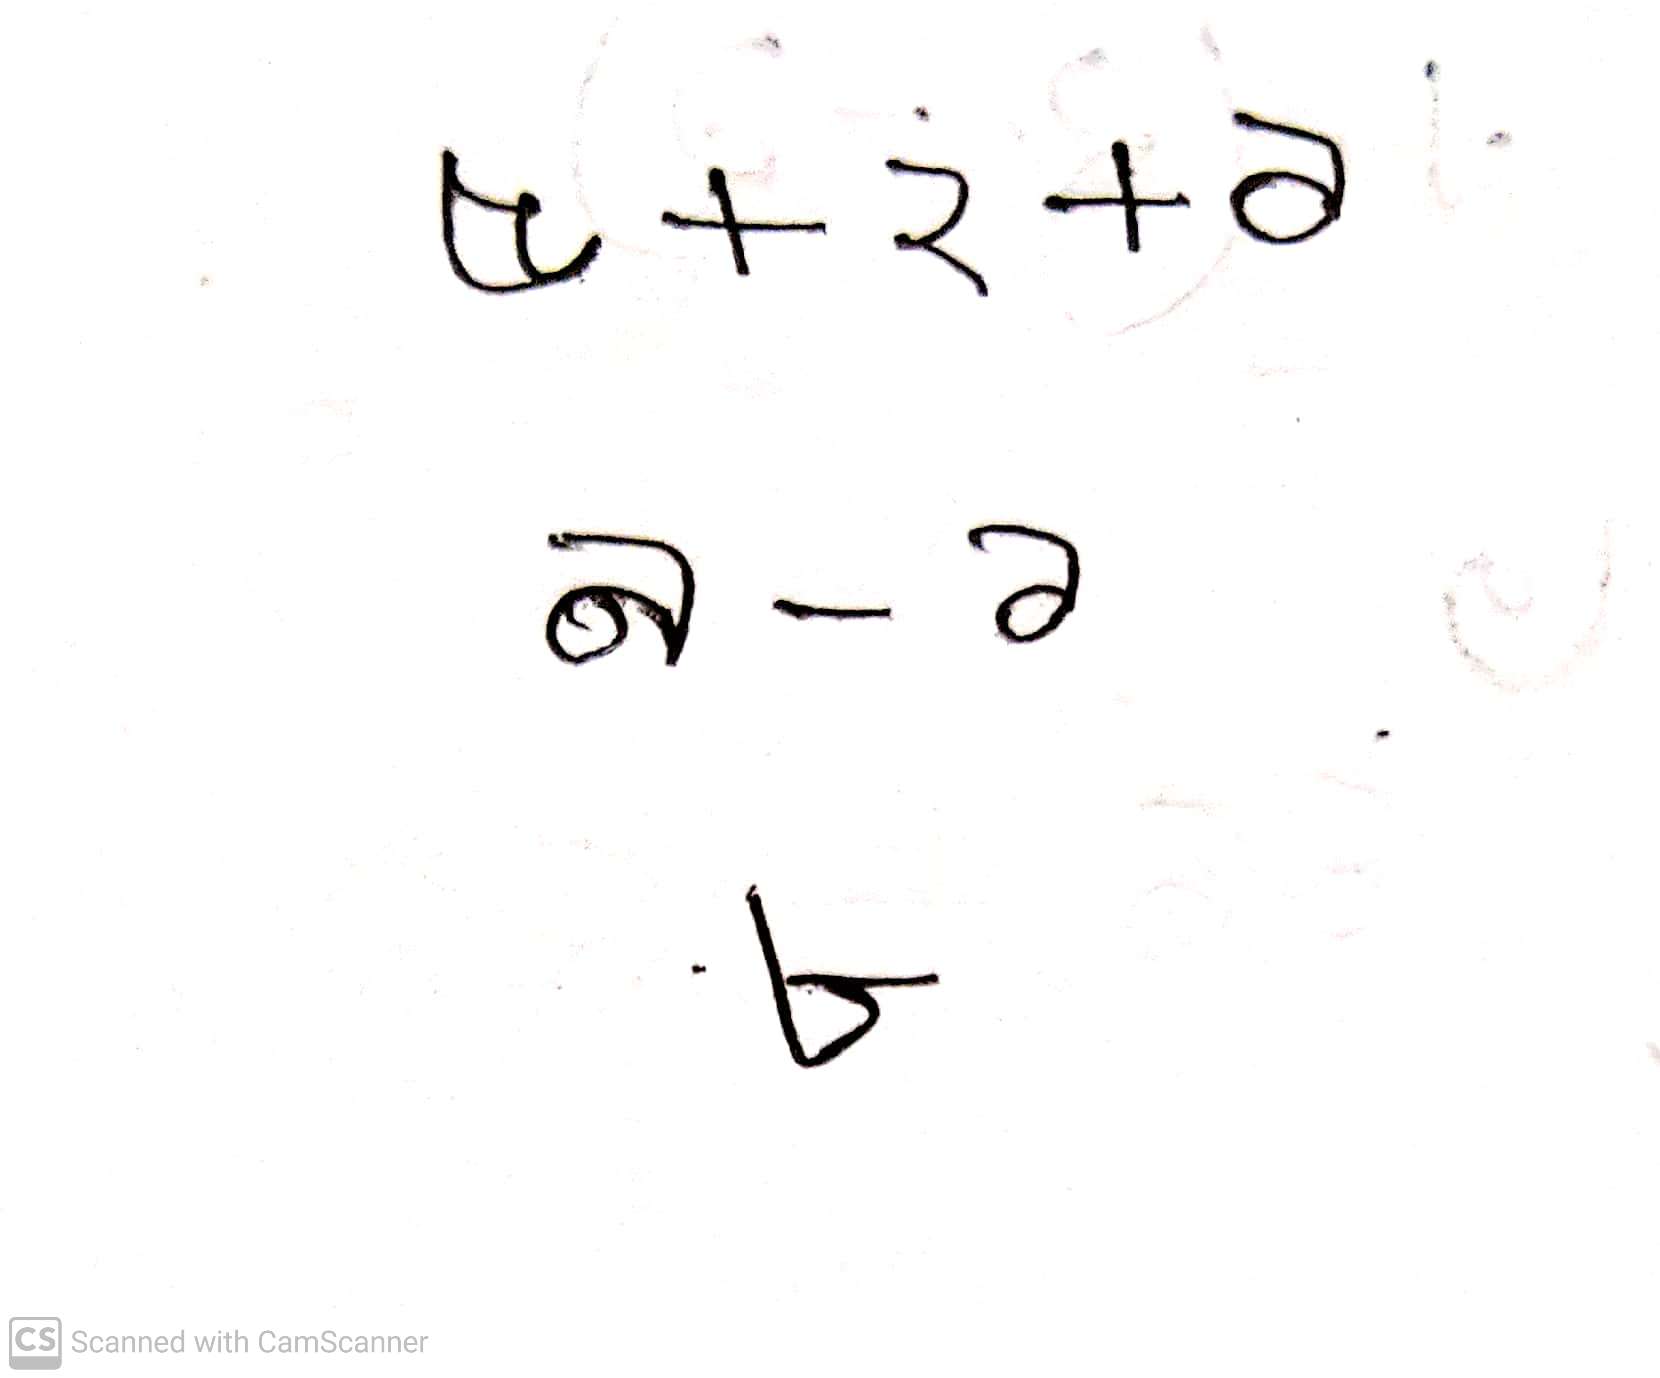 ৬ + ২ + ১
৯ - ১
৮
CS Scanned with CamScanner